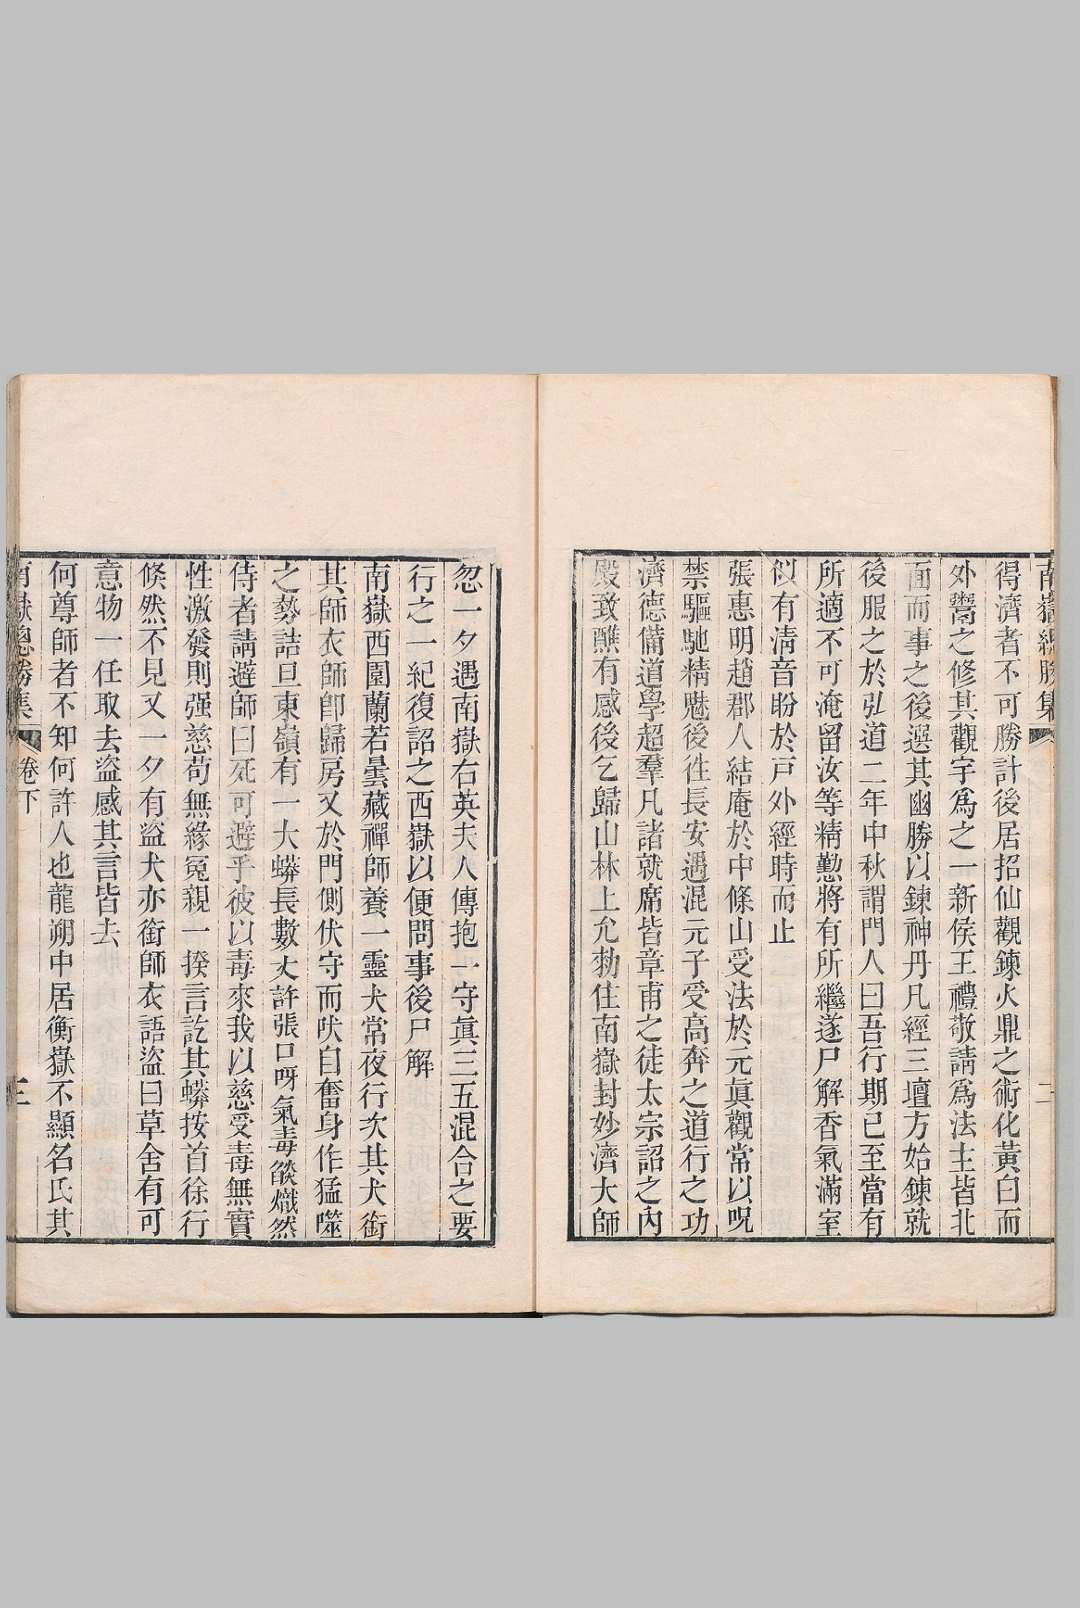 南嶽總勝集
二
得濟者不可勝計後居招仙觀鍊火鼎之術化黃白而
外鬻之修其觀宇爲之一新侯王禮敬請爲法主皆北
面而事之後選其幽勝以鍊神丹凡經三壇方始鍊就
後服之於弘道二年中秋謂門人曰吾行期已至當有
所適不可淹留汝等精懃將有所繼遂尸解香氣滿室
似有淸音盼於戸外經時而止
張惠明趙郡人結庵於中條山受法於元眞觀常以呪
禁驅馳精魅後徃長安遇混元子受高奔之道行之功
濟德備道學超羣凡諸就席皆章甫之徒太宗詔之內
殿致醮有感後乞歸山林上允勑住南嶽封妙濟大師
忽一夕遇南嶽右英夫人傳抱一守眞三五混合之要
行之一紀復詔之西嶽以便問事後尸解
南嶽西園蘭若曇藏禪師養一靈犬常夜行次其犬銜
其師衣師卽歸房又於門側伏守而吠自奮身作猛噬
之勢詰旦東嶺有一大蟒長數丈許張口呀氣毒燄熾然
侍者請避師曰死可避乎彼以毒來我以慈受毒無實
性激發則强慈苟無緣冤親一揆言訖其蟒按首徐行
倐然不見又一夕有盜犬亦銜師衣語盜曰草舍有可
意物一任取去盜感其言皆去
何尊師者不知何許人也龍朔中居衡嶽不顯名氏其
南嶽總勝集
卷下
三